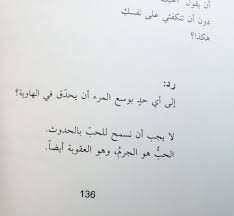 أن يقول
دون أن تنكفئي على نفسكِ
هكذا؟
ردّ:
إلى أي حدٍ بوسع المرء أن يحدّق في الهاوية؟
لا يجب أن نسمح للحبّ بالحدوث.
الحبُّ هو الجرمُ، وهو العقوبة أيضاً.
136